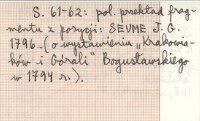 S. 61-62: pol. przekład frag-
mentu z pozycji: SEUME J. G.
1796. (o wystawieniu „Krakowia-
ków i Górali" Bogusławskiego
w 1794 r.).